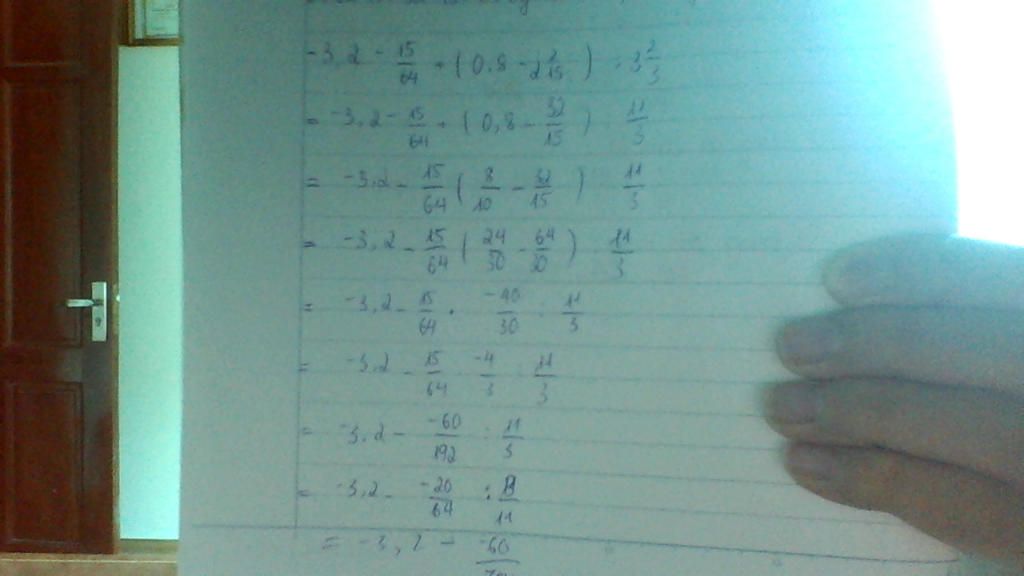 -3,2 - 15/64 + ( 0.8 - 2 2/15 ) : 3 2/3
= -3,2 - 15/64 + ( 0,8 - 32/15 ) 11/3
= -3,2 - 15/64 ( 8/10 - 32/15 ) 11/3
= -3,2 - 15/64 ( 24/30 - 64/30 ) 11/3
= -3,2 - 15/64 . -40/30 : 11/3
= -3,2 - 15/64 -4/3 : 11/3
= -3,2 - -60/192 : 11/3
= -3,2 - -20/64 : 3/11
= -3,2 - -60